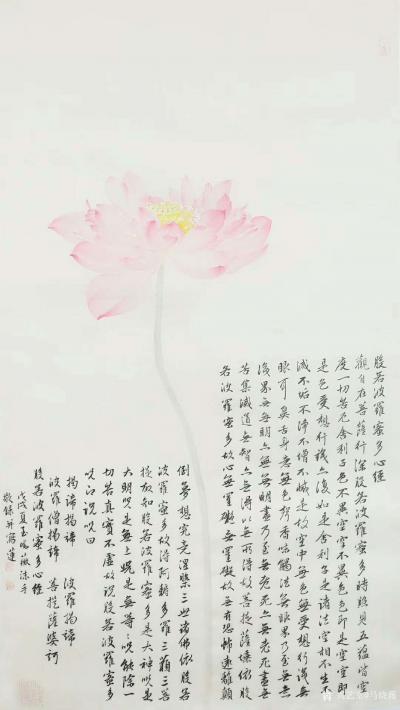 般若波羅蜜多心經
觀自在菩薩行深般若波羅蜜多時照見五蘊皆空
度一切苦厄舍利子色不異空空不異色色即是空空即
是色受想行識亦復如是舍利子是諸法空相不生不
滅不垢不淨不增不減是故空中無色無受想行識無
眼耳鼻舌身意無色聲香味觸法無眼界乃至無意
識界無無明亦無無明盡乃至無老死亦無老死盡無
苦集滅道無智亦無得以無所得故菩提薩埵依般
若波羅蜜多故心無罣礙無罣礙故無有恐怖遠離顛
倒夢想究竟涅槃三世諸佛依般若
波羅蜜多故得阿耨多羅三藐三菩
提故知般若波羅蜜多是大神咒是
大明咒是無上咒是無等等咒能除一
切苦真實不虛故說般若波羅蜜多
咒即說咒曰
揭諦揭諦 波羅揭諦
波羅僧揭諦 菩提薩婆訶
般若波羅蜜多心經
戊戌夏玉曉薇沐手
敬錄并寫蓮